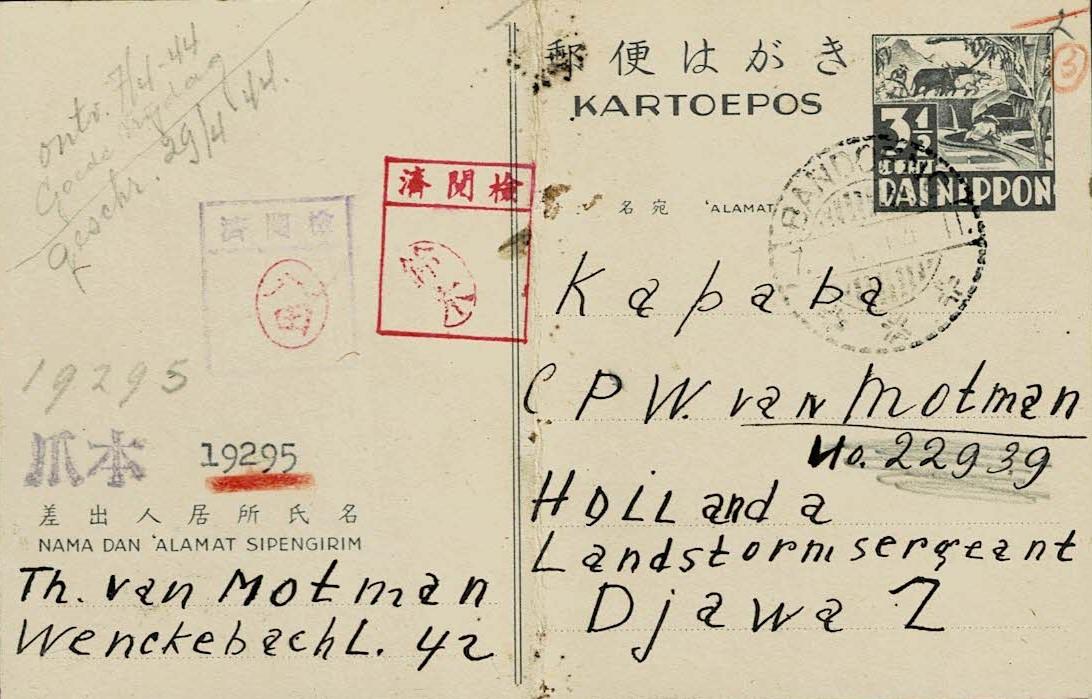 ontv. 7/4-44
Goede Vrijdag
geschr. 29/4 '44.
濟閱檢
八田
濟閱檢
19295
爪本
19295
差出人居所氏名
NAMA DAN 'ALAMAT SIPENGIRIM
Th. van Motman
Wenckebach L. 42
郵便はがき
KARTOEPOS
3½
DAI NIPPON
2
3
名宛 'ALAMAT
BANDOENG
Kapaba
C P W. van Motman
No. 22939
HOLLanda
Landstormsergeant
Djawa Z